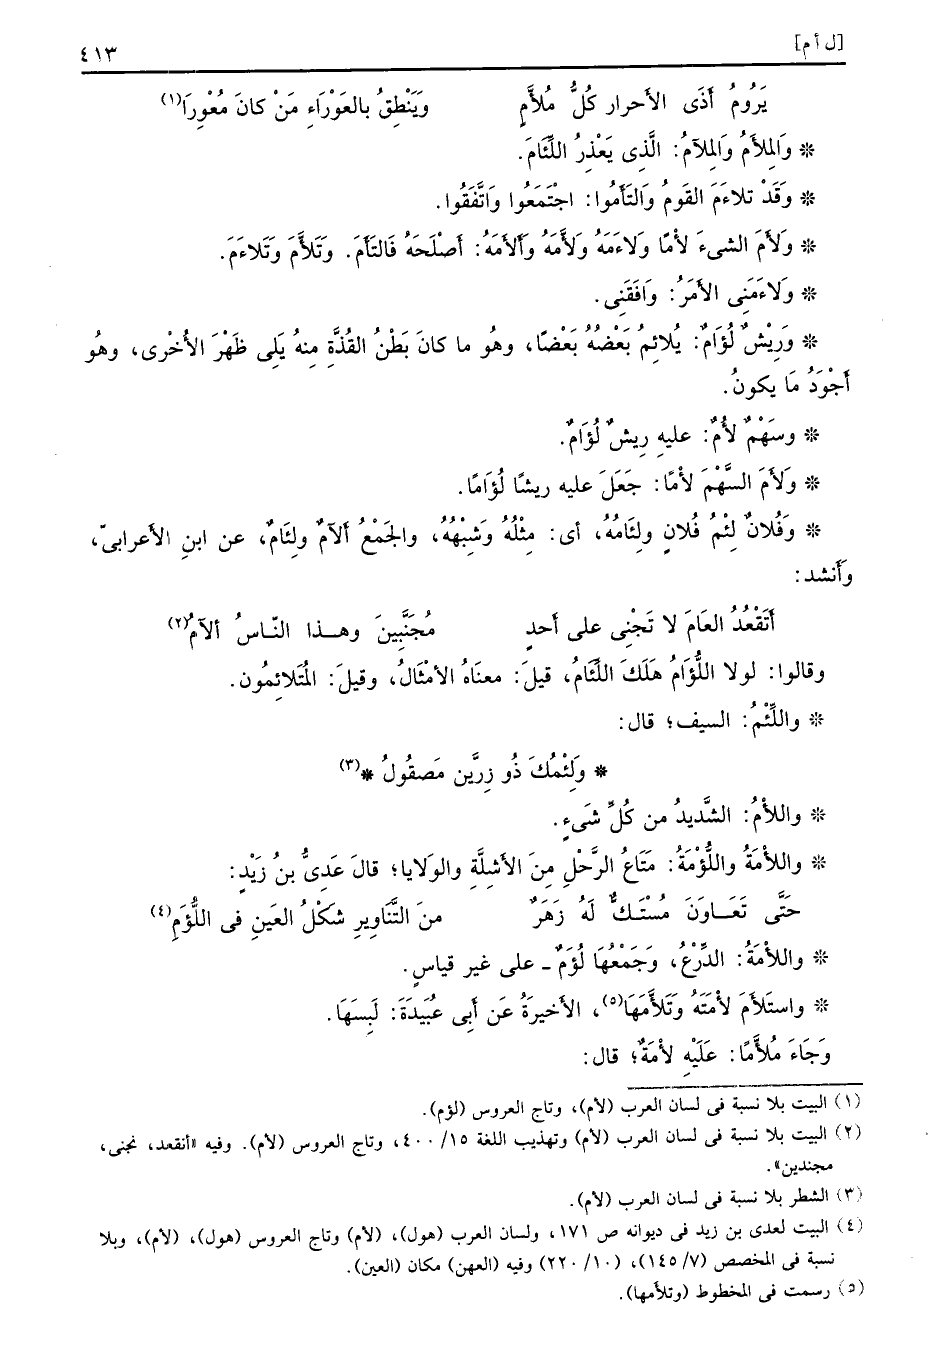 [ل أ م] ٤١٣
يَرُومُ أَذَى الأحرار كُلُّ مُلأَّمٍ وَيَنْطِقُ بالعَوْرَاءِ مَنْ كانَ مُعْوِرَا(١)
* وَالمِلأَمُ وَالمِلآمُ: الَّذِى يَعْذِرُ اللِّئَامَ.
* وَقَدْ تلاءَمَ القَومُ وَالتَأَمُوا: اجْتَمَعُوا وَاتَّفَقُوا.
* وَلأَمَ الشىءَ لأمًا وَلاءَمَهُ وَلأَّمَهُ وَأَلأمَهُ: أصْلَحَهُ فَالتَأَمَ. وَتَلأَّمَ وَتَلاءَمَ.
* وَلاءَمَنِى الأمَرُ: وَافَقَنِى.
* وَرِيْشٌ لُؤَامٌ: يُلائِمُ بَعْضُهُ بَعْضًا، وهُو ما كانَ بَطْنُ القُذَّةِ مِنهُ يَلِى ظَهْرَ الأُخْرى، وهُو
أَجْوَدُ مَا يكونُ.
* وسَهْمٌ لأْمٌ: عليهِ رِيشٌ لُؤَامٌ.
* وَلأَمَ السَّهْمَ لأْمًا: جَعَلَ عليه ريشًا لُؤَامًا.
* وَفُلانٌ لِئْمُ فُلانٍ ولِئَامُهُ، أى: مِثْلُهُ وَشِبْهُهُ، والجَمْعُ ألآمٌ ولِئَامٌ، عن ابنِ الأعرابىّ،
وأَنشد:
أَتَقْعُدُ العَامَ لا تَجْنِى على أحدٍ مُجَنَّبِينَ وهــذا النّـاسُ ألآمُ(٢)
وقالوا: لولا اللُّؤَامُ هَلَكَ اللِّئَامُ، قيلَ: معنَاهُ الأمْثَالُ، وقيلَ: المُتَلائِمُون.
* واللِّئْمُ: السيف؛ قال:
* وَلِئْمُكَ ذُو زِرَّين مَصقُولُ *(٣)
* واللأْمُ: الشَّديدُ من كُلِّ شَىءٍ.
* واللأمَةُ واللُّؤْمَةُ: مَتَاعُ الرَّحْلِ مِنَ الأشِلَّةِ والوَلايا؛ قالَ عَدِىُّ بنُ زَيْدٍ:
حَتَّى تَعَــاوَنَ مُسْتَـكٌّ لَهُ زَهَرٌ منَ التَّنَاوِيرِ شَكْلُ العَينِ فى اللُّؤَمِ(٤)
* واللأْمَةُ: الدِّرْعُ، وَجَمْعُهَا لُؤَمٌ ـ على غير قياسٍ.
* واستَلأَمَ لأْمَتَهُ وَتَلأَّمَهَا(٥)، الأخيرَةُ عَن أبى عُبَيدَةَ: لَبِسَهَا.
وَجَاءَ مُلأَّمًا: عَلَيْهِ لأمَةٌ؛ قال:
(١) البيت بلا نسبة فى لسان العرب (لأم)، وتاج العروس (لؤم).
(٢) البيت بلا نسبة فى لسان العرب (لأم) وتهذيب اللغة ١٥/ ٤٠٠، وتاج العروس (لأم). وفيه «أنقعد، نجنى،
مجندين».
(٣) الشطر بلا نسبة فى لسان العرب (لأم).
(٤) البيت لعدى بن زيد فى ديوانه ص ١٧١، ولسان العرب (هول)، (لأم) وتاج العروس (هول)، (لأم)، وبلا
نسبة فى المخصص (٧/ ١٤٥)، (١٠/ ٢٢٠) وفيه (العهن) مكان (العين).
(٥) رسمت فى المخطوط (وتلأمها).